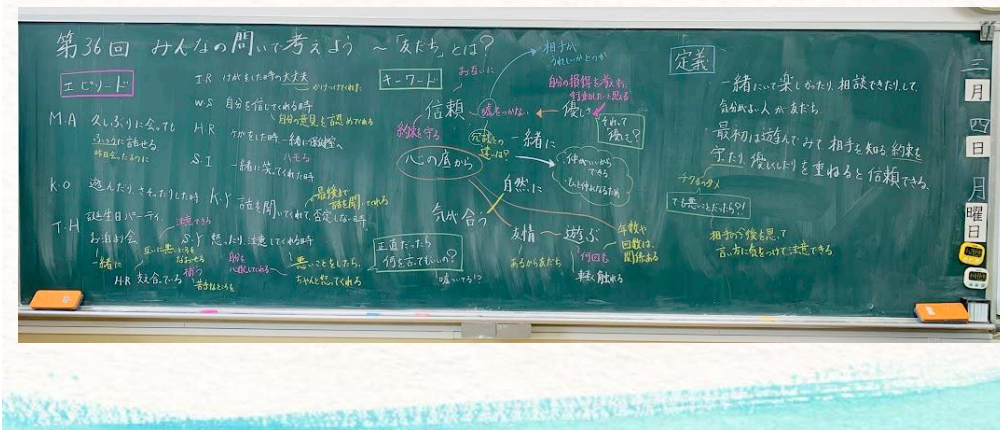 第36回 みんなの問いで考えよう ～「友だち」とは?
エピソード
M.A 久しぶりに会っても
ふつうに話せる
昨日会ったように
K.O 遊んだり、
した時
T.H 誕生日パーティ
お泊り会
一緒に
注意できる
互いに悪いところを
なおせる
H.R 支え合っている
補う
苦手なところを
I.R けがをした時の大丈夫
かけつけてくれた
W.S 自分を信じてくれる時
自分の意見を認めてくれる
H.R ケガをした時一緒に保健室へ
S.I 一緒に笑ってくれた時
ハモる
K.Y 話を聞いてくれて、否定しない時
最後まで
話を聞いてくれる
S.Y 怒ったり、注意してくれる時
自分を
心配してくれる
悪いことをしたら、
ちゃんと怒ってくれる
キーワード
お互いに
信頼
約束を守る
嘘をつかない
相手が
うれしいかどうか
自分の損得を考えず、
行動したいと思える
優しさ
それって
優しさ?
冗談との
違いは?
一緒に
心の底から
自然に
仲がいいから
できる
もっと仲よくなるため
気が合う
友情 ～ 遊ぶ
あるから友だち
何回も
軽く触れる
年数や
回数は、
関係ある
正直だったら
何を言ってもいいの?
嘘ついてる!?
定義
一緒にいて楽しかったり、相談できたりして、
気分がよい人が友だち。
・最初は遊んでみて相手を知る 約束を
守ったり、優しくしたりを重ねると信頼できる。
チクチクタメ
でも悪いことだったら?!
相手の今後を思って
言い方に気をつけて注意できる
三
月
四
日
月
曜
日